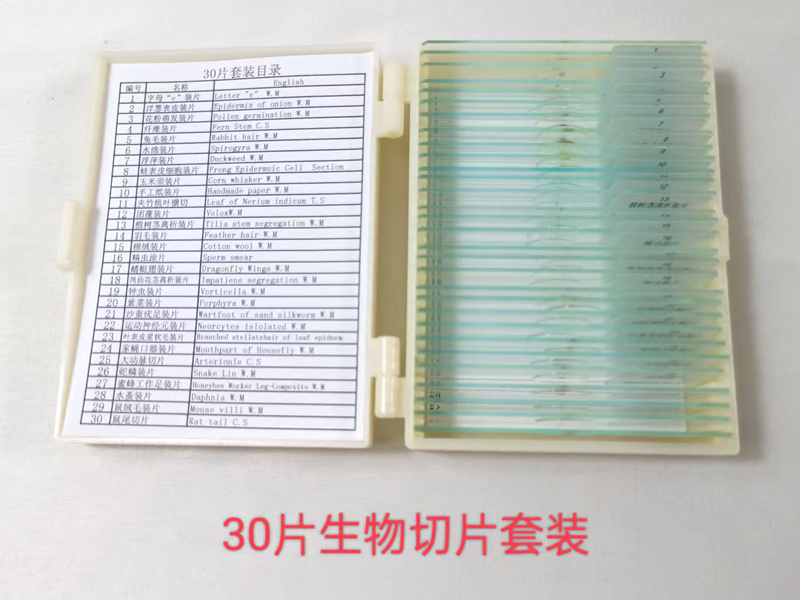 30片套装目录
编号 名称 English
1 字母"e"装片 Letter "e" W.M
2 洋葱表皮装片 Epidermis of onion W.M
3 花粉萌发装片 Pollen germination W.M
4 纤维装片 Fern Stem C.S
5 兔毛装片 Rabbit hair W.M
6 水绵装片 Spirogyra W.M
7 浮萍装片 Duckweed W.M
8 蛙表皮细胞装片 Frong Epidermuic Cell Section
9 玉米须装片 Corn whisker W.M
10 手工纸装片 Handmade paper W.M
11 夹竹桃叶横切 Leaf of Nerium indicum T.S
12 团藻装片 VoloxW.M
13 椴树茎离析装片 Tilia stem segregation W.M
14 羽毛装片 Feather hair W.M
15 棉绒装片 Cotton wool W.M
16 精虫涂片 Sperm smear
17 蜻蜓翅装片 Dragonfly Wings W.M
18 凤仙花茎离析装片 Impatiens segregation W.M
19 钟虫装片 Vorticella W.M
20 紫菜装片 Porphyra W.M
21 沙蚕疣足装片 Wartfoot of sand silkworm W.M
22 运动神经元装片 Neurcytes islolated W.M
23 叶表皮星状毛装片 Branched stellatehair of leaf epiderm
24 家蝇口器装片 Mouthpart of Housefly W.M
25 大动脉切片 Arterionle C.S
26 蛇鳞装片 Snake Lin W.M
27 蜜蜂工作足装片 Honeybee Worker Leg-Composite W.M
28 水蚤装片 Daphnia W.M
29 鼠绒毛装片 Mouse villi W.M
30 鼠尾切片 Rat tail C.S
1
3
5
6
7
8
9
10
11
12
13
椴树茎离析装片
15
16
17
30片生物切片套装